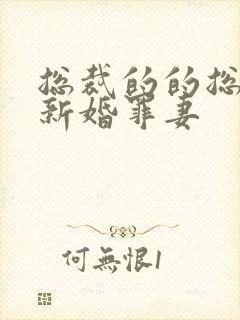 总裁的的总
新婚罪妻
何無恨1